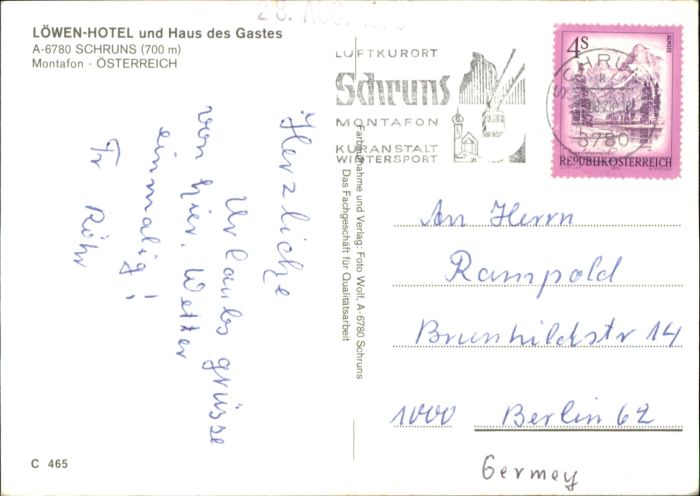 LÖWEN-HOTEL und Haus des Gastes
A-6780 SCHRUNS (700 m)
Montafon - ÖSTERREICH
Herzliche
Urlaubsgrüsse
von hier. Wetter
einmalig!
Fr Röhr
C 465
Farbaufnahme und Verlag: Foto Wolf, A-6780 Schruns
Das Fachgeschäft für Qualitätsarbeit
LUFTKURORT
Schruns
MONTAFON
KURANSTALT
WINTERSPORT
4S
ALMSEE
SCHRUNS
6780
REPUBLIK ÖSTERREICH
An Herrn
Rampold
Brunhildstr 14
1000 Berlin 62
Germey